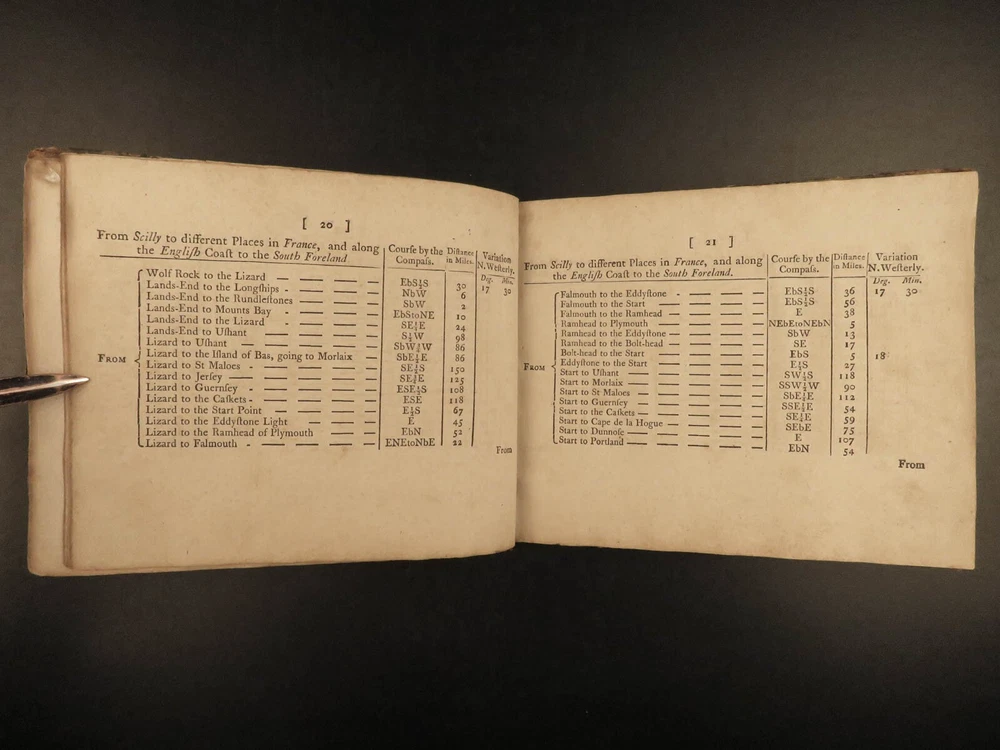 [ 20 ]
From Scilly to different Places in France, and along the Engliſh Coaſt to the South Foreland
Courſe by the Compaſs.
Diſtance in Miles.
Variation N. Weſterly.
Deg. Min.
FROM
Wolf Rock to the Lizard — — — — EbS½S 30 17 30
Lands-End to the Longſhips - — — — — NbW 6
Lands-End to the Rundleſtones — — — — SbW 2
Lands-End to Mounts Bay - — — — — EbStoNE 10
Lands-End to the Lizard - — — — — SE¼E 24
Lands-End to Uſhant — — — — — S½W 98
Lizard to Uſhant — — — — — SbW¾W 86
Lizard to the Iſland of Bas, going to Morlaix — SbE½E 86
Lizard to St Maloes - — — — — SE½S 150
Lizard to Jerſey — — — — — SE¼E 125
Lizard to Guernſey - — — — — ESE½S 108
Lizard to the Caſkets - — — — — ESE 118
Lizard to the Start Point — — — — E½S 67
Lizard to the Eddyſtone Light — — — E 45
Lizard to the Ramhead of Plymouth — — — EbN 52
Lizard to Falmouth - — — — — ENEtoNbE 22
From
[ 21 ]
From Scilly to different Places in France, and along the Engliſh Coaſt to the South Foreland.
Courſe by the Compaſs.
Diſtance in Miles.
Variation N. Weſterly.
Deg. Min.
FROM
Falmouth to the Eddyſtone - — — — EbS½S 36 17 30
Falmouth to the Start — — — — EbS½S 56
Falmouth to the Ramhead — — — — E 38
Ramhead to Plymouth — — — — NEbEtoNEbN 5
Ramhead to the Eddyſtone — — — — SbW 13
Ramhead to the Bolt-head — — — — SE 17
Bolt-head to the Start — — — — EbS 5 18
Eddyſtone to the Start — — — — E½S 27
Start to Uſhant — — — — SW½S 118
Start to Morlaix — — — — SSW½W 90
Start to St Maloes — — — — SbE½E 112
Start to Guernſey — — — — SSE½E 54
Start to the Caſkets — — — — SE½E 59
Start to Cape de la Hogue — — — — SEbE 75
Start to Dunnoſe — — — — E 107
Start to Portland — — — — EbN 54
From